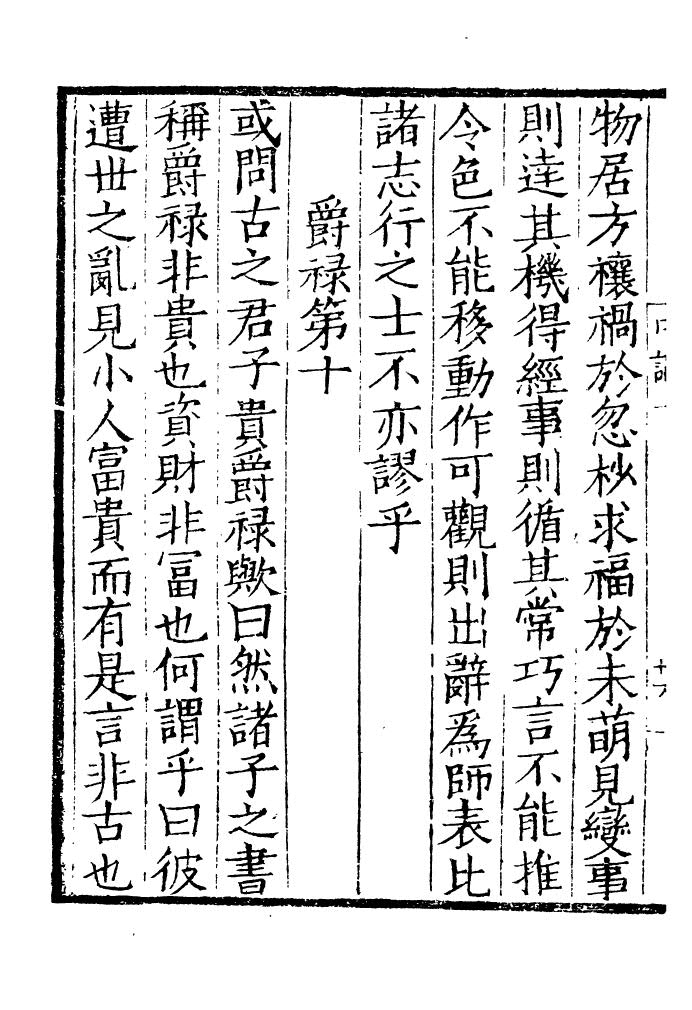 物居方禳禍於忽杪求福於未萌見變事
則逹其機得經事則循其常巧言不能推
令色不能移動作可觀則出辭爲師表比
諸志行之士不亦謬乎
爵禄第十
或問古之君子貴爵禄歟曰然諸子之書
稱爵禄非貴也資財非冨也何謂乎曰彼
遭世之亂見小人富貴而有是言非古也